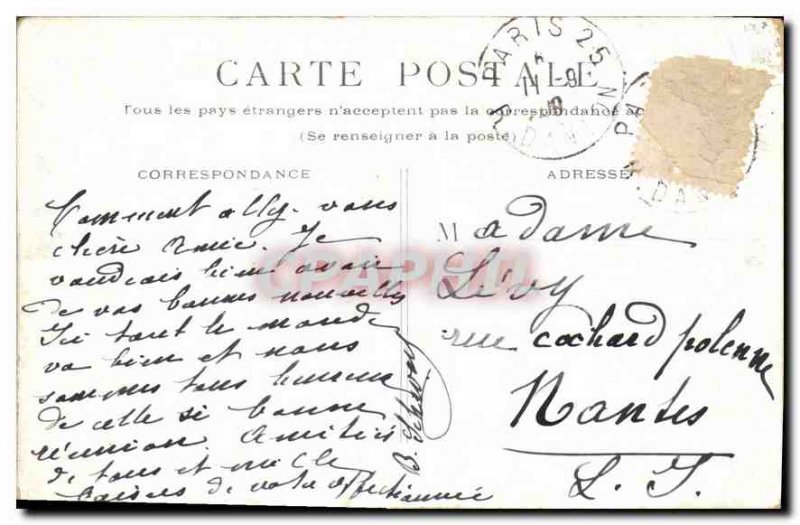 PARIS 25
CARTE POSTALE
Tous les pays étrangers n'acceptent pas la correspondance
(Se renseigner à la poste)
CORRESPONDANCE
ADRESSE
Comment allez-vous
chère amie. Je
voudrais bien avoir
de vos bonnes nouvelles
Ici tout le monde
va bien et nous
sommes tous heureux
de cette si bonne
réunion. Amitiés
de tous et mille
baisers de votre affectionnée
B.
Madame
Lévy
rue Cochard polenne
Nantes
L. I.
CPAPHD